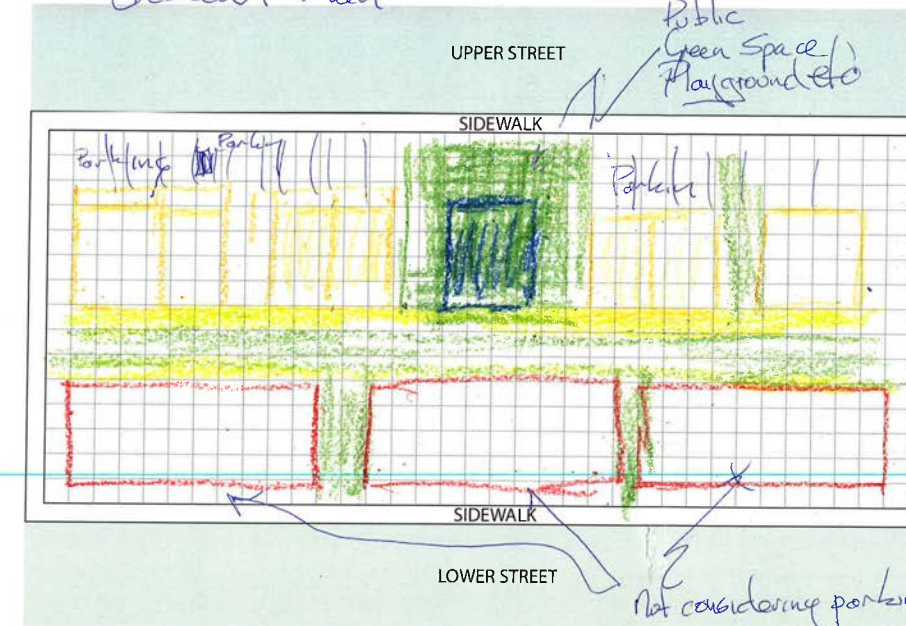 Public
UPPER STREET
Green Space/
Playground etc
SIDEWALK
Parking Parkin
Parkin
SIDEWALK
LOWER STREET
Not considering parkin